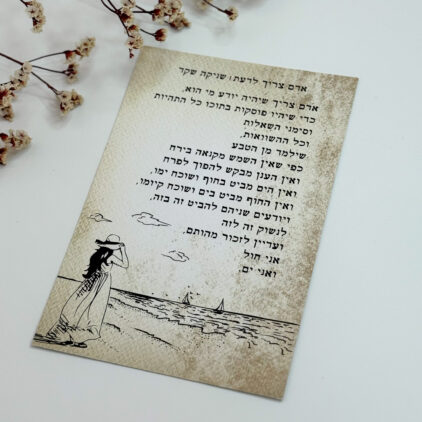 אדם צריך לדעת / שניקה שקד
אדם צריך שיהיה יודע מי הוא,
כדי שיהיו פוסקות בתוכו כל התהיות
וסימני השאלות
וכל ההשוואות,
שילמד מן הטבע
כפי שאין השמש מקנאה בירח
ואין הענן מבקש להפוך לפרח
ואין הים מביט בחוף ושוכח ימו,
ואין החוף מביט בים ושוכח קיומו,
ויודעים שניהם להביט זה בזה,
לנשוק זה לזה
ועדיין לזכור מהותם,
אני חול
ואני ים.